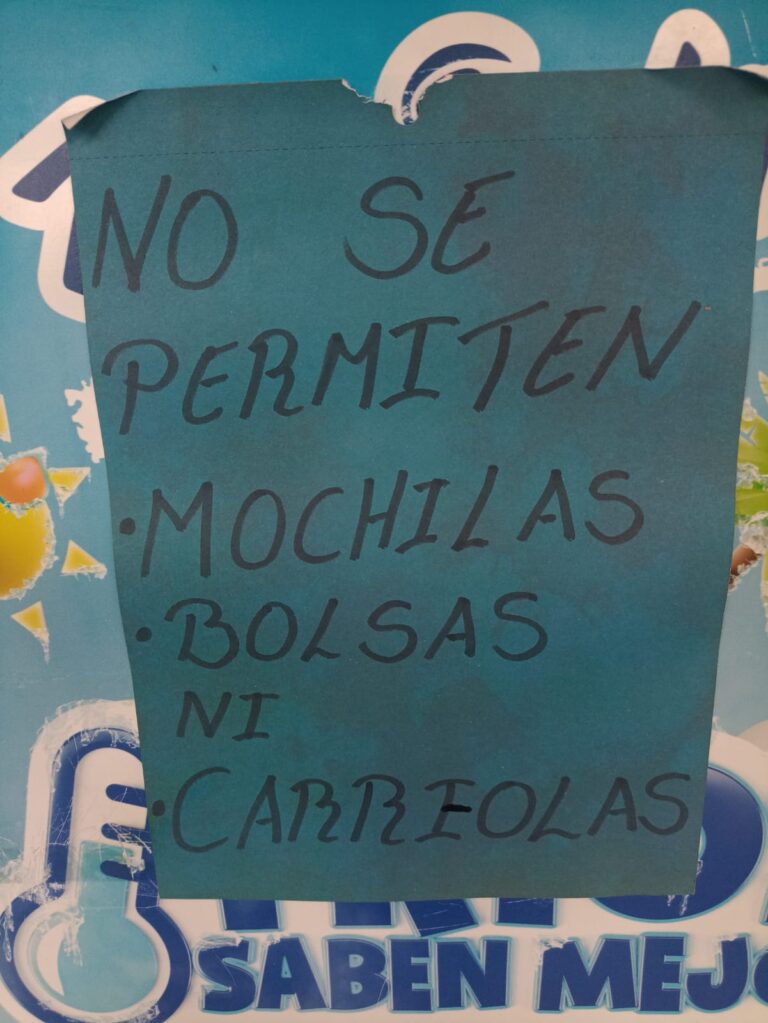 NO SE
PERMITEN
• MOCHILAS
• BOLSAS
NI
• CARRIOLAS
SABEN MEJO